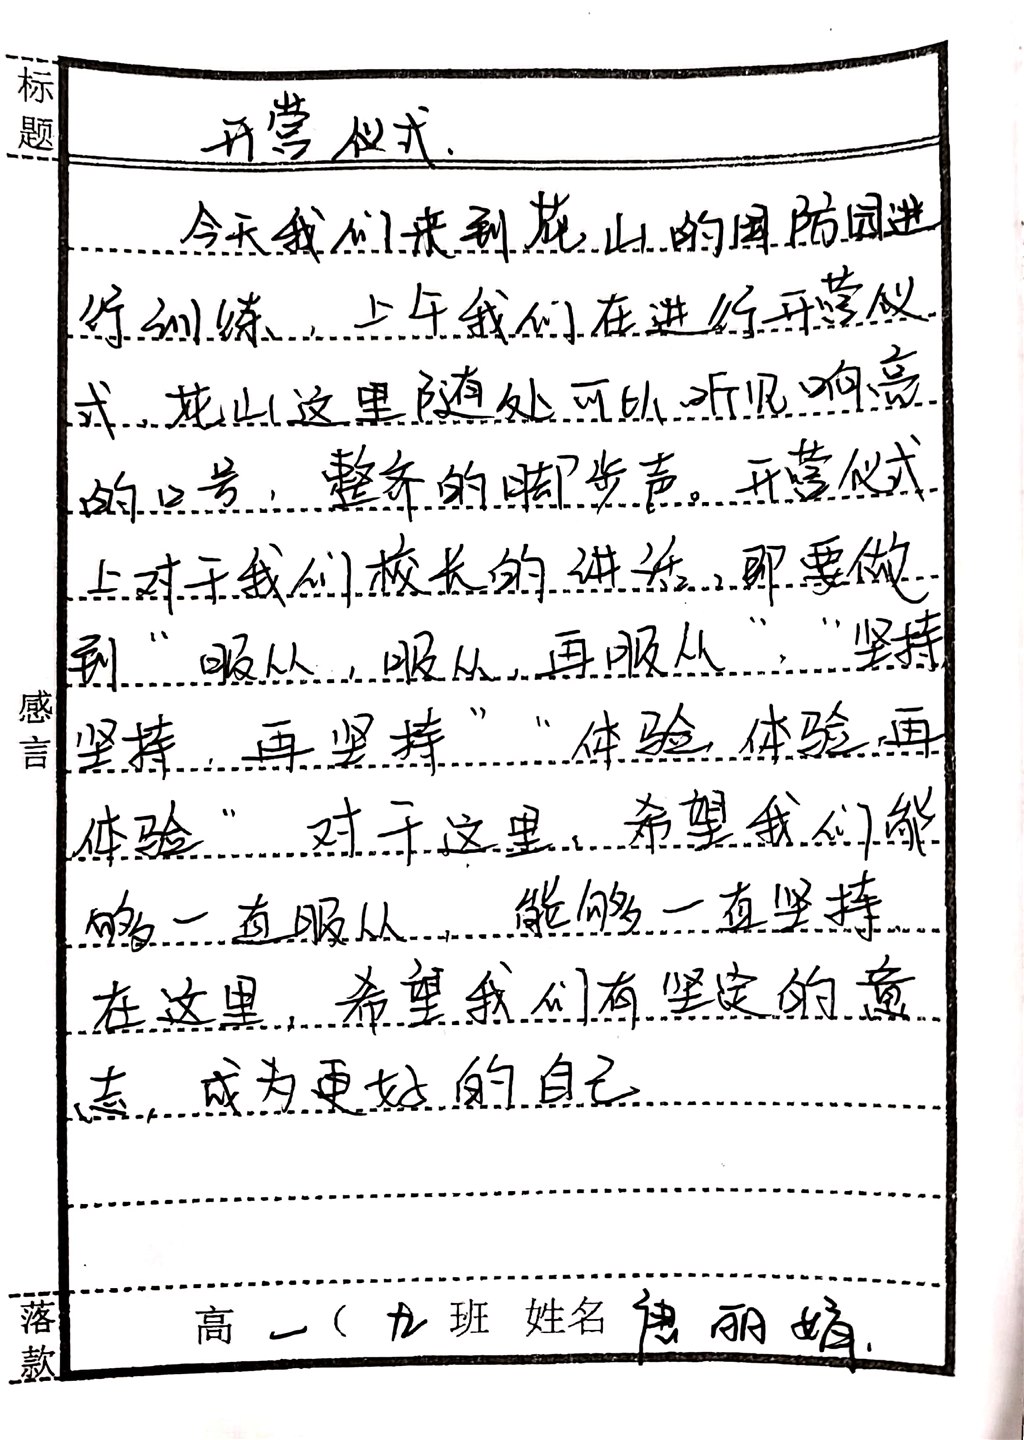 标题
开营仪式.
今天我们来到花山的国防园进
行训练,上午我们在进行开营仪
式,花山这里随处可以听见响亮
的口号,整齐的脚步声。开营仪式
上对于我们校长的讲话,即要做
到“服从,服从,再服从”,“坚持,
坚持,再坚持”“体验,体验,再
体验”对于这里,希望我们能
够一直服从,能够一直坚持,
在这里,希望我们有坚定的意
志,成为更好的自己
感言
落款
高一(九班 姓名 唐丽娟.